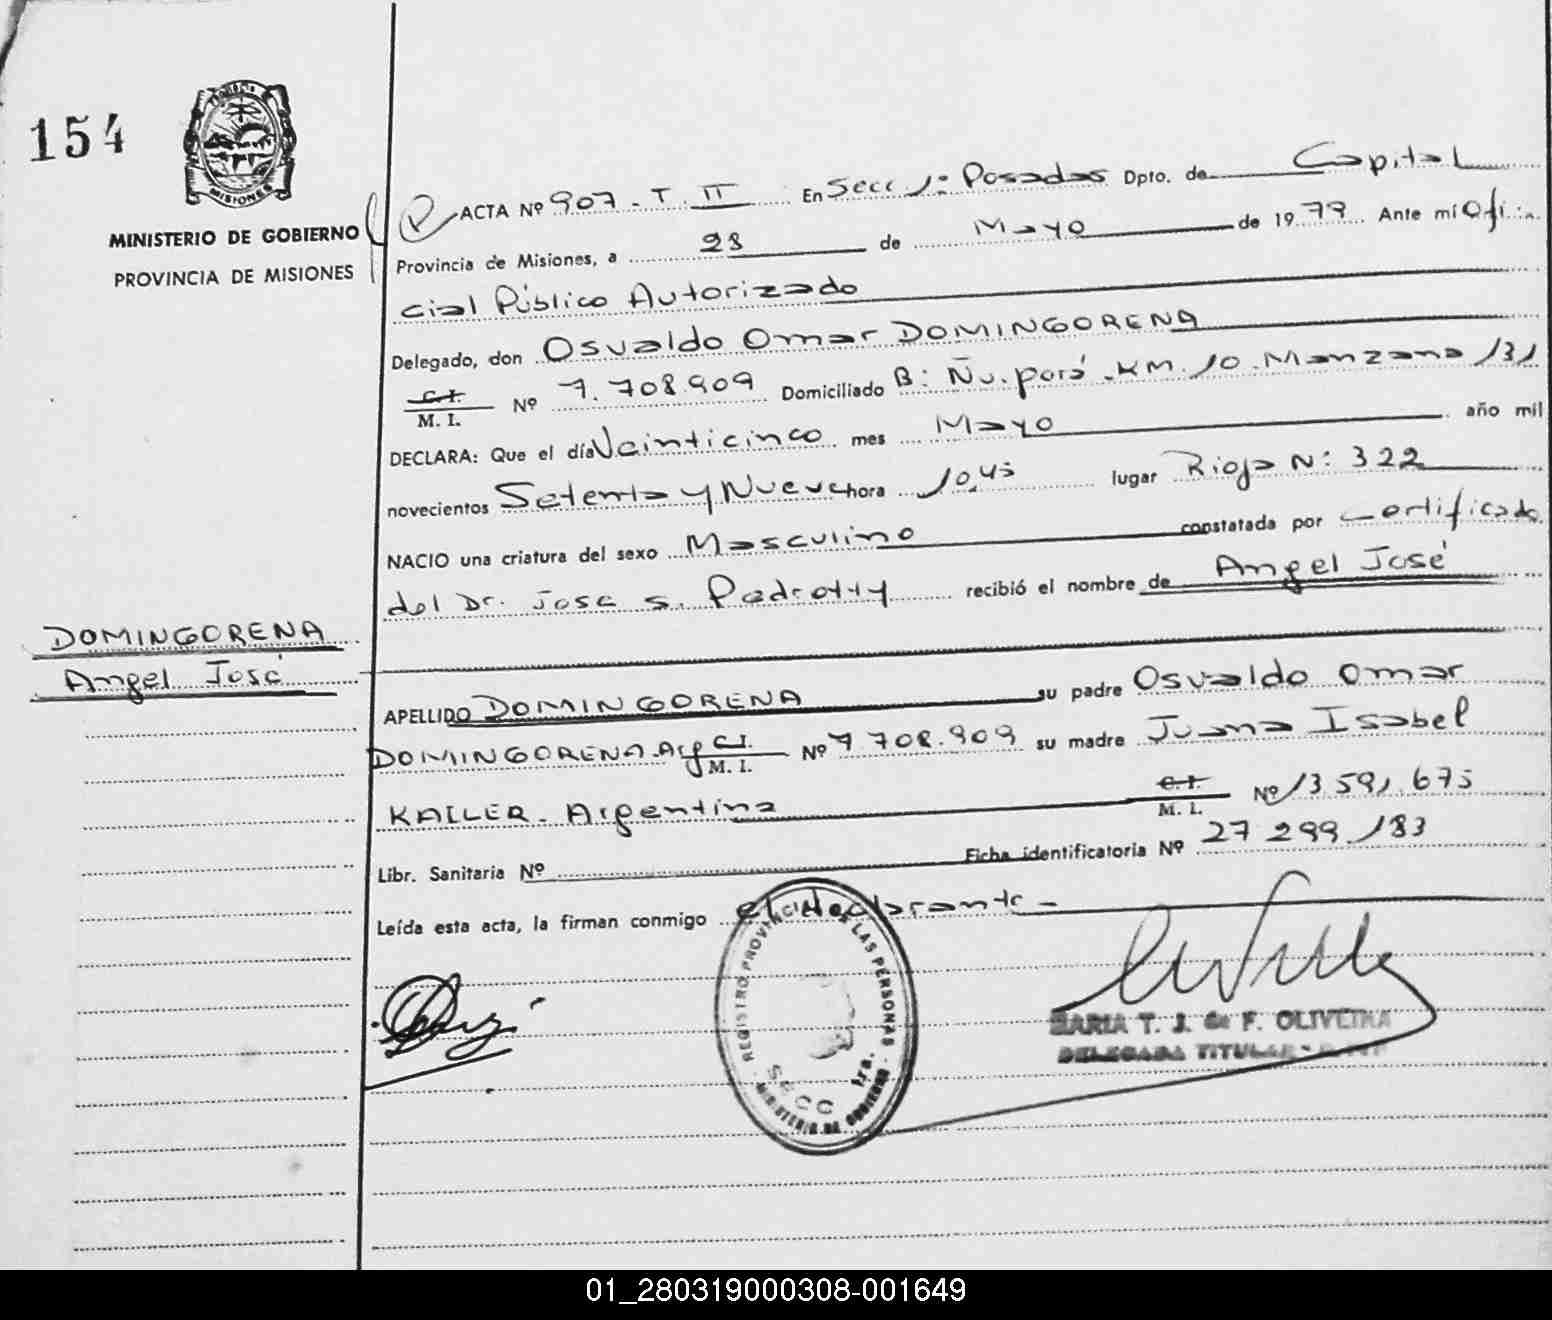 154
MISIONES
MINISTERIO DE GOBIERNO
PROVINCIA DE MISIONES
ACTA Nº 907 - T. II En Secc 1º Posadas Dpto. de Capital
Provincia de Misiones, a 28 de Mayo de 1979 Ante mí Ofi
cial Público Autorizado
Delegado, don Osvaldo Omar DOMINGORENA
C. I.
M. I. Nº 7.708.909 Domiciliado B: Ñu.porá. KM. 10. Manzana 131
DECLARA: Que el día Veinticinco mes Mayo año mil
novecientos Setenta y Nueve hora 10,45 lugar Rioja N: 322
NACIO una criatura del sexo Masculino constatada por Certificado
del Dr. Jose S. Pedrotty recibió el nombre de Angel José
DOMINGORENA
Angel José
APELLIDO DOMINGORENA su padre Osvaldo Omar
DOMINGORENA. Arg C.I.
M. I. Nº 7 708.909 su madre Juana Isabel
KALLER. Argentina C. I.
M. I. Nº 13 591.675
Libr. Sanitaria Nº Ficha identificatoria Nº 27 299 183
Leída esta acta, la firman conmigo el declarante -
REGISTRO PROVINCIAL DE LAS PERSONAS
SECC 1ra.
MINISTERIO DE GOBIERNO
MARIA T. J. de F. OLIVEIRA
DELEGADA TITULAR
01_280319000308-001649